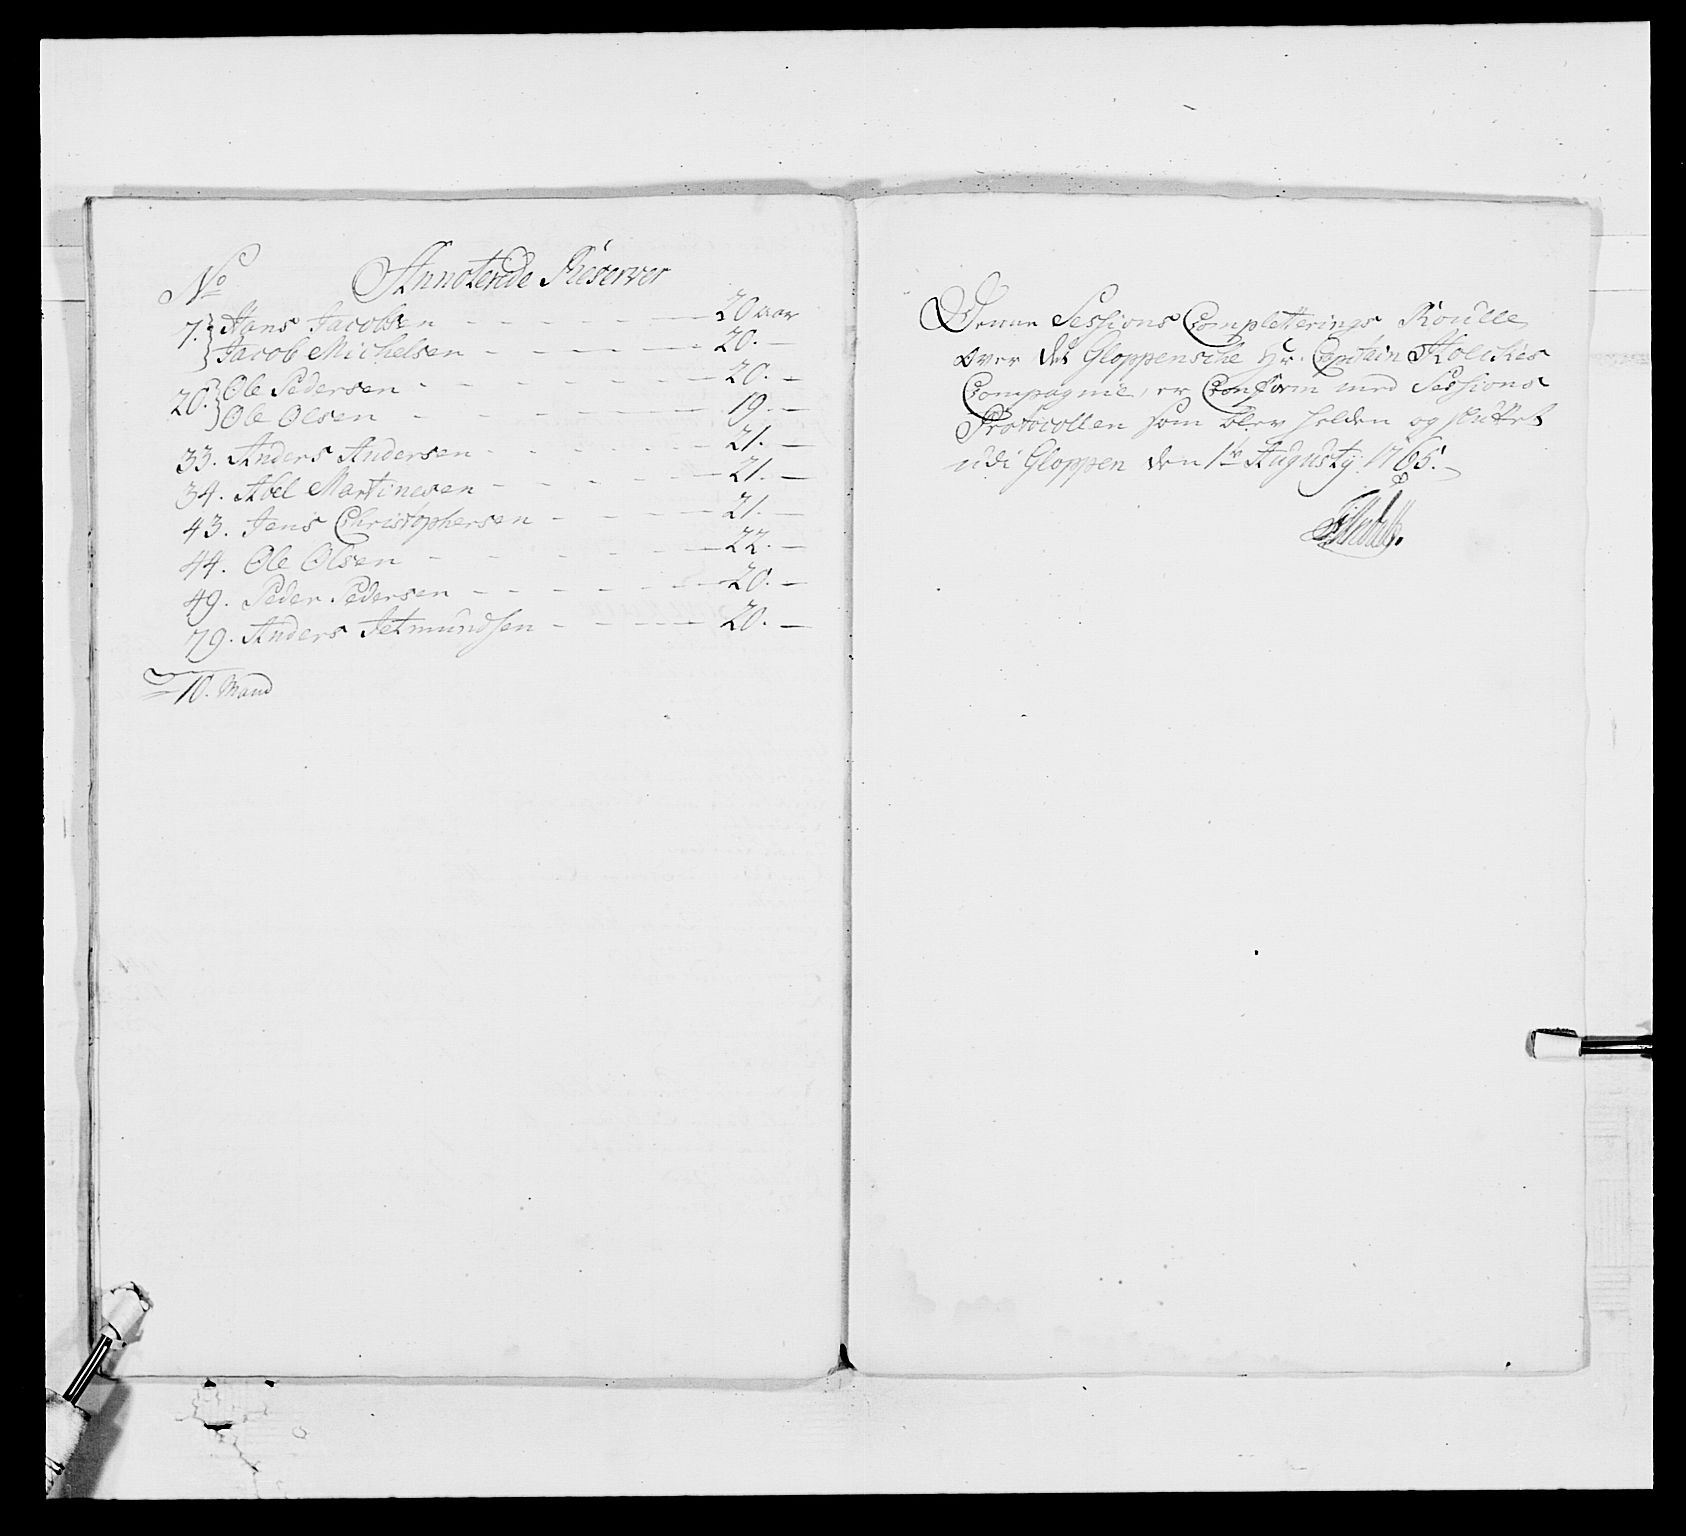 No Annoterede Reserver
7. Hans Jacobsen - - - - - - 20 aar
Jacob Michelsen - - - - - 20. -
20. Ole Pedersen - - - - - - 20. -
Ole Olsen - - - - - - 19. -
33. Anders Andersen - - - - - 21. -
34. Abel Martinesen - - - - - 21. -
43. Jens Christophersen - - - - 21. -
44. Ole Olsen - - - - - - 22. -
49. Peder Pedersen - - - - - 20. -
79. Anders Jetmundsen - - - - 20. -
10. Mand
Denne Sessions Completterings Roulle
over det Gloppensche Hr. Captain
Compagnie, er Conform med Sessions
Protocollen som blev holden og sluttet
udi Gloppen den 1te Augusty 1765.